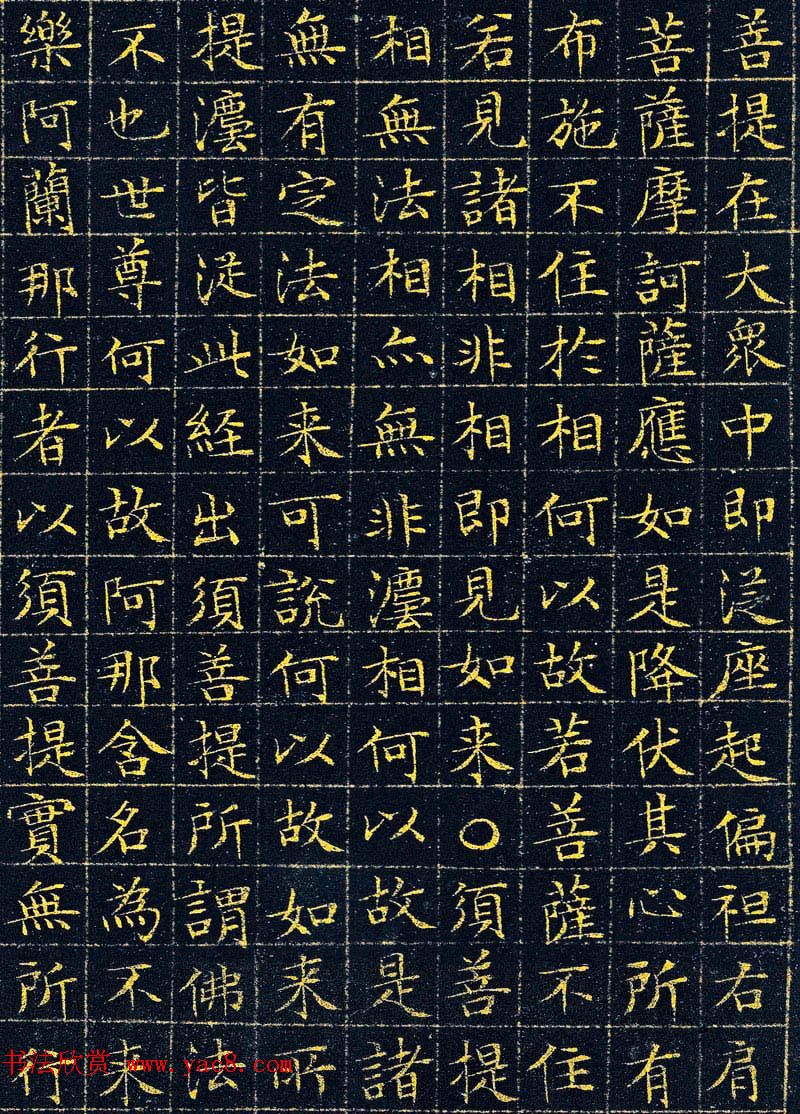 善提在大眾中即從座起偏袒右肩
菩薩摩訶薩應如是降伏其心所有
布施不住於相何以故若善薩不住
若見諸相非相即見如来〇須善提
相無法相亦無非灋相何以故是諸
無有定法如来可説何以故如来所
提灋皆從此経出須善提所謂佛法
不也世尊何以故阿那含名為不来
樂阿蘭那行者以須善提實無所行
书法欣赏 www.yac8.com